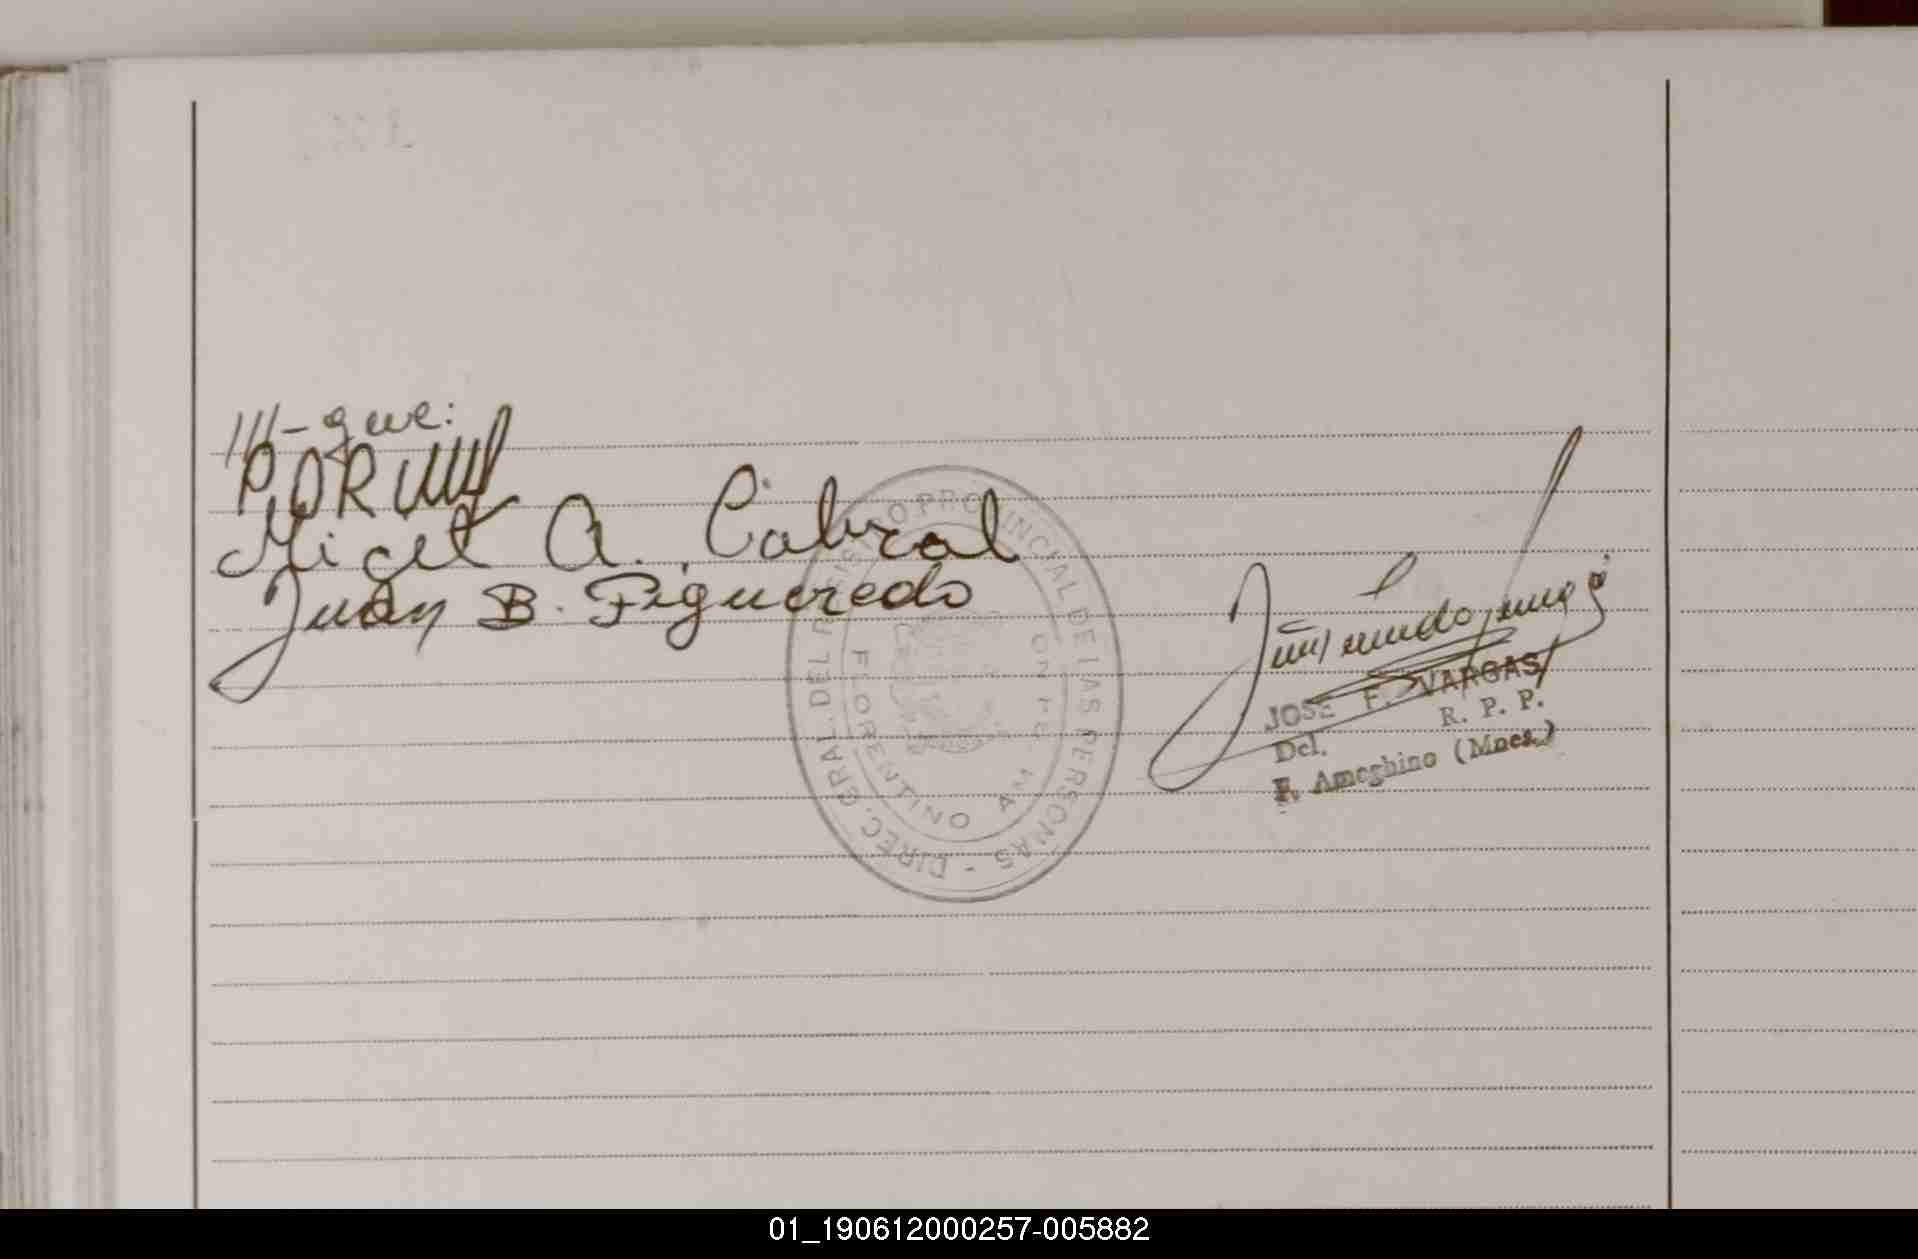 ///-que:
Micel A. Cabral
Juan B. Figueredo
DIREC. GRAL. DEL REGISTRO PROVINCIAL DE LAS PERSONAS -
FLORENTINO AM
JOSE F. VARGAS
Del. R. P. P.
F. Ameghino (Mnes.)
01_190612000257-005882